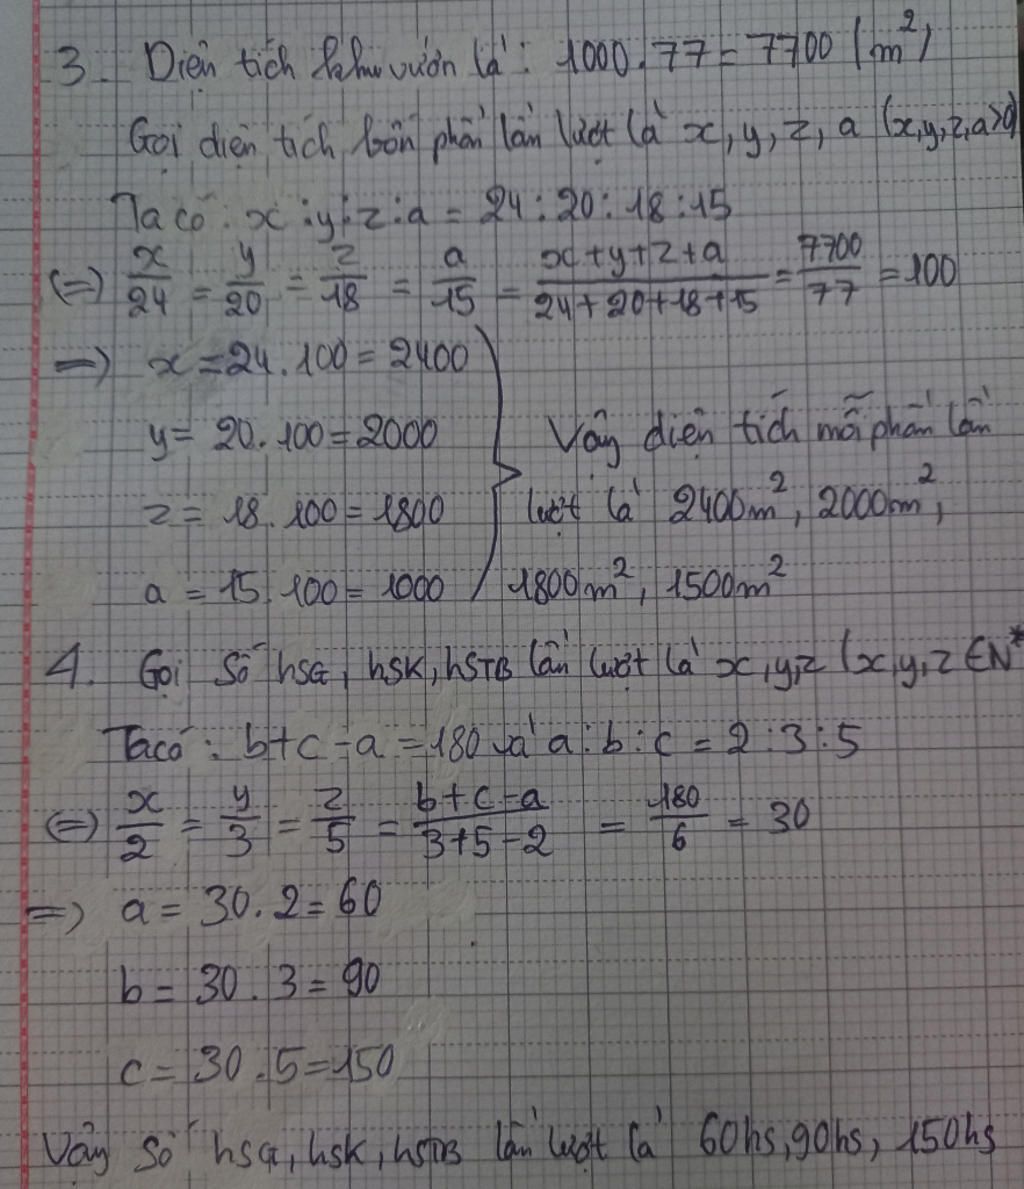 3. Diện tích khu vườn là: 1000.77 = 7700 (m²)
Gọi diện tích bốn phần lần lượt là x, y, z, a (x,y,z,a>0)
Ta có: x:y:z:a = 24:20:18:15
(=) x/24 = y/20 = z/18 = a/15 = (x+y+z+a)/(24+20+18+15) = 7700/77 = 100
=) x = 24.100 = 2400
y = 20.100 = 2000
z = 18.100 = 1800
a = 15.100 = 1000
Vậy diện tích mỗi phần lần
lượt là 2400m², 2000m²,
1800m², 1500m²
4. Gọi số hsG, hsK, hsTB lần lượt là x,y,z (x,y,z ∈ N*
Ta có: b+c-a = 180 và a:b:c = 2:3:5
(=) x/2 = y/3 = z/5 = (b+c-a)/(3+5-2) = 180/6 = 30
=) a = 30.2 = 60
b = 30.3 = 90
c = 30.5 = 150
Vậy số hsG, hsk, hsTB lần lượt là 60hs, 90hs, 150hs